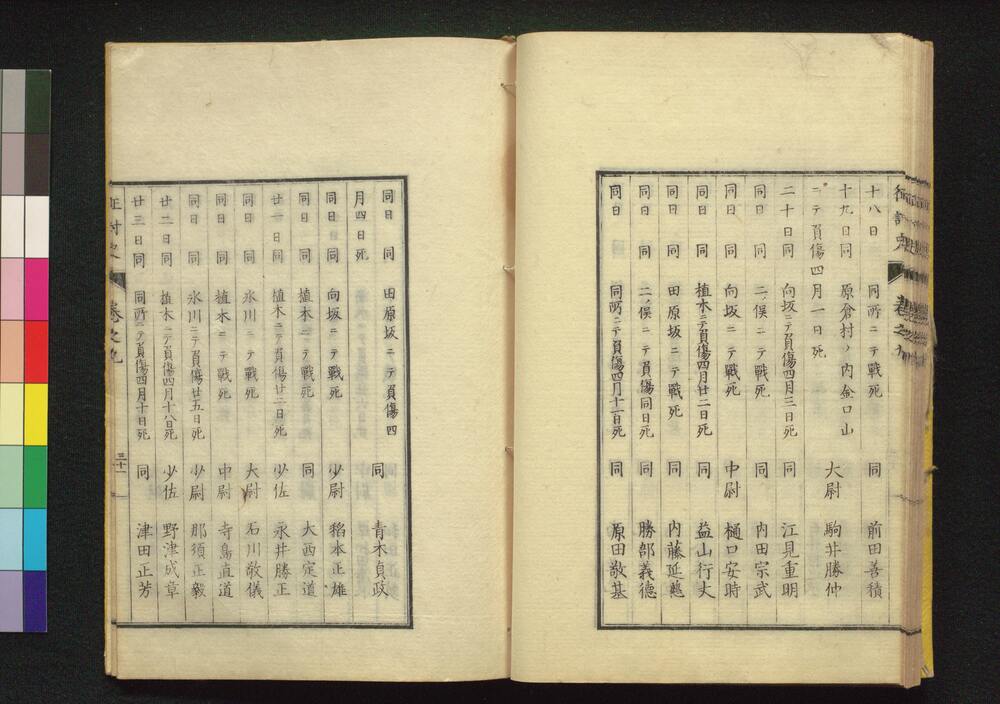 十八日 同 同所ニテ戰死 同 前田善積
十九日 同 原倉村ノ内金口山
ニテ負傷四月一日死 大尉 駒井勝仲
二十日 同 向坂ニテ負傷四月三日死 同 江見重明
同日 同 二ノ俣ニテ戰死 同 内田宗武
同日 同 向坂ニテ戰死 中尉 樋口安時
同日 同 植木ニテ負傷四月廿二日死 同 益山行丈
同日 同 田原坂ニテ戰死 同 内藤延
同日 同 二ノ俣ニテ負傷同日死 同 勝部義德
同日 同 同所ニテ負傷四月十一日死 同 原田敬基
同日 同 田原坂ニテ負傷四
月四日死 同 青木貞政
同日 同 向坂ニテ戰死 少尉 稻本正雄
同日 同 植木ニテ戰死 同 大西定道
廿一日 同 植木ニテ負傷廿二日死 少佐 永井勝正
同日 同 氷川ニテ戰死 大尉 石川敬儀
同日 同 植木ニテ戰死 中尉 寺島直道
同日 同 氷川ニテ負傷廿五日死 少尉 那須正毅
廿二日 同 植木ニテ負傷四月十八日死 少佐 野津成章
廿三日 同 同所ニテ負傷四月十日死 同 津田正芳
征討史 卷之九 三十一